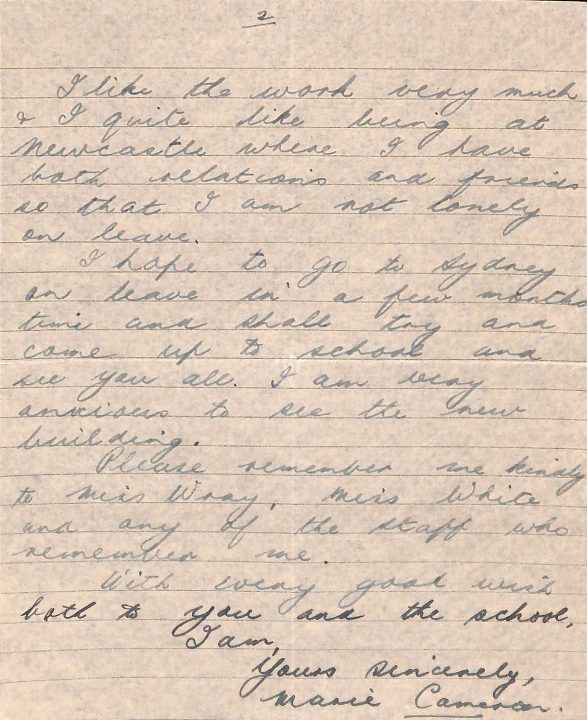 2
I like the work very much
& I quite like being at
Newcastle where I have
both relations and friends
so that I am not lonely
on leave.
I hope to go to Sydney
on leave in a few months
time and shall try and
come up to school and
see you all. I am very
anxious to see the new
building.
Please remember me kindly
to Miss Wray, Miss White
and any of the staff who
remember me.
With every good wish
both to you and the school,
I am,
Yours sincerely,
Marie Cameron.